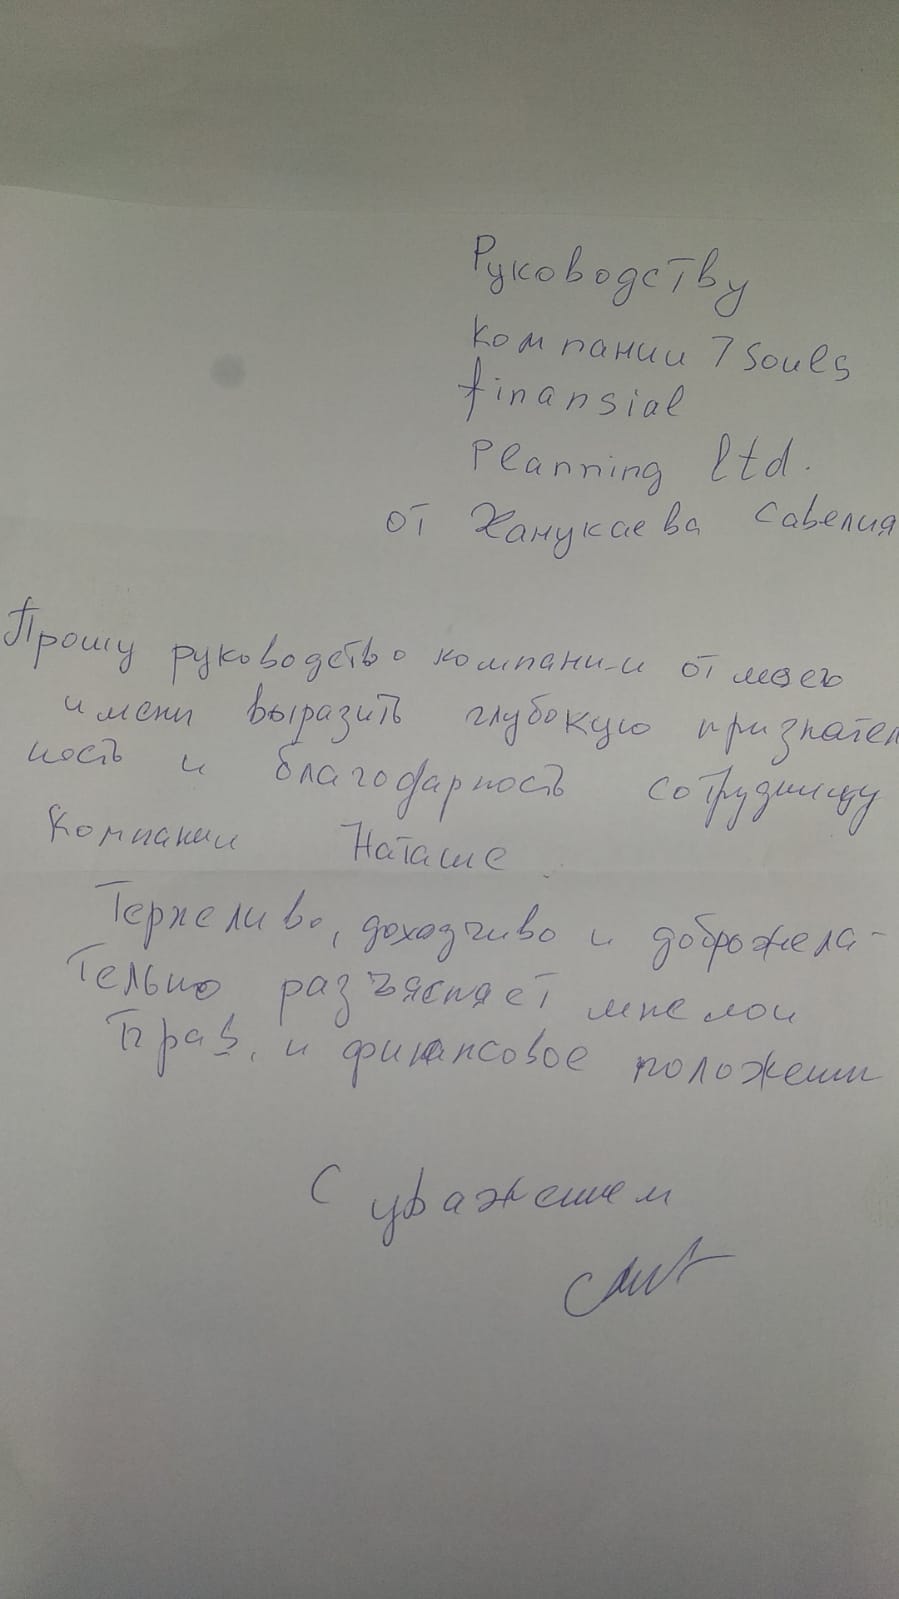 Руководству
компании 7 souls
finansial
Planning ltd.
от Ханукаева Савелия
Прошу руководство компании от моего
имени выразить глубокую признатель
ность и благодарность сотрудницу
компании Наташе.
Терпеливо, доходчиво и доброжела-
тельно разъясняет мне мои
прав, и финансовое положении
С уважением